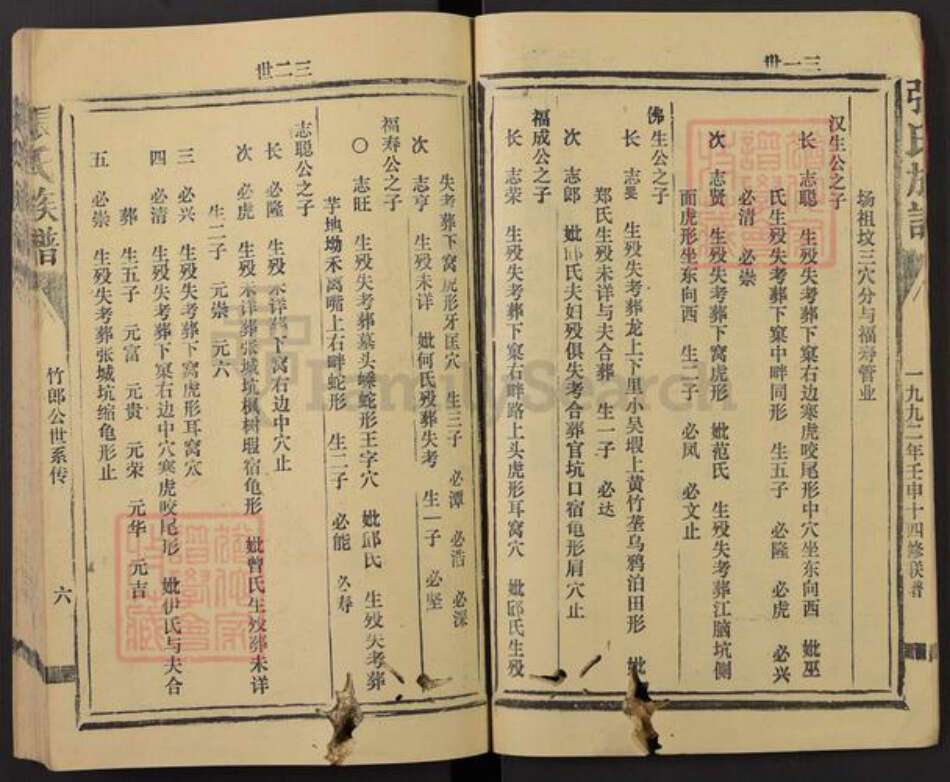 张氏族谱
一九九二年壬申十四修联谱
三一世
场祖坟三穴分与福寿管业
汉生公之子
长 志聪 生殁失考葬下窠右边寒虎咬尾形中穴坐东向西 妣巫
氏生殁失考葬下窠中畔同形 生五子 必隆 必虎 必兴
必清 必崇
次 志贤 生殁失考葬下窝虎形 妣范氏 生殁失考葬江脑坑侧
面虎形坐东向西 生二子 必凤 必文止
佛生公之子
长 志 生殁失考葬龙上下里小吴瑕上黄竹垄乌鸦泊田形 妣
郑氏生殁未详与夫合葬 生一子 必达
次 志郎 妣邱氏夫妇殁俱失考合葬官坑口宿龟形肩穴止
福成公之子
长 志荣 生殁失考葬下窠右畔路上头虎形耳窝穴 妣邱氏生殁
三二世
失考葬下窝虎形牙匡穴 生三子 必潭 必浩 必深
次 志亨 生殁未详 妣何氏殁葬失考 生一子 必坚
福寿公之子
〇 志旺 生殁失考葬墓头 蛇形王字穴 妣邱氏 生殁失考葬
芋地坳禾离嘴上右畔蛇形 生二子 必能 必寿
志聪公之子
长 必隆 生殁未详葬下窝右边中穴止
次 必虎 生殁未详葬张城坑枫树瑕宿龟形 妣曾氏生殁葬未详
生二子 元崇 元六
三 必兴 生殁失考葬下窝虎形耳窝穴
四 必清 生殁失考葬下窠右边中穴寒虎咬尾形 妣伊氏与夫合
葬 生五子 元富 元贵 元荣 元华 元吉
五 必崇 生殁失考葬张城坑缩龟形止
张氏族谱
竹郎公世系传
六
FamilySearch